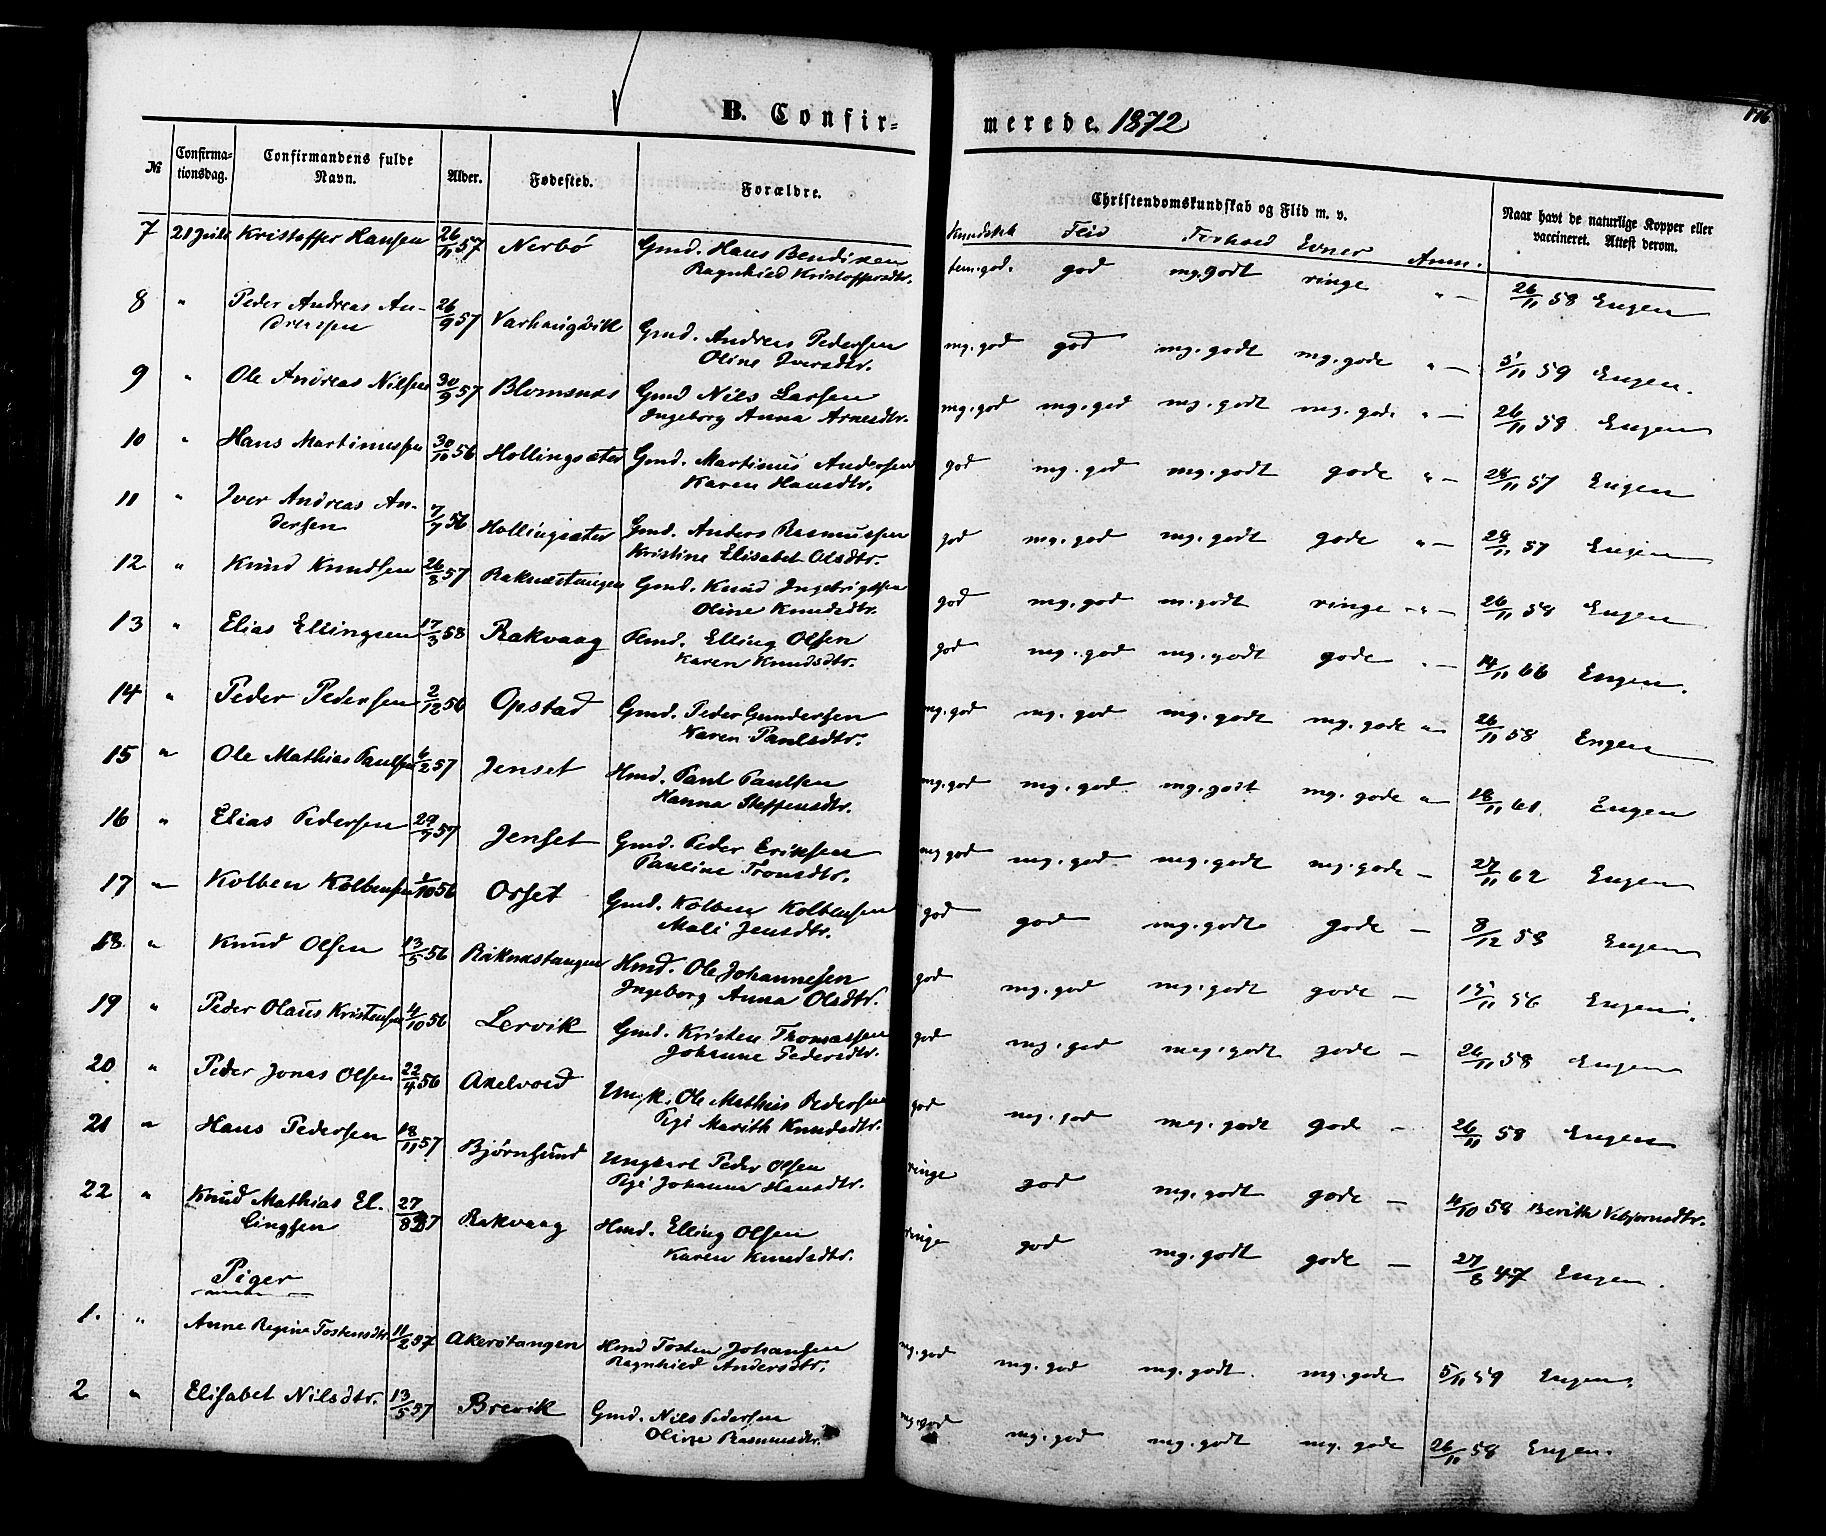 176
B. Confirmerede. 1872
№ Confirmationsdag. Confirmandens fulde Navn. Alder. Fødested. Forældre. Christendomskundskab og Flid m. v. Naar havt de naturlige Kopper eller vaccineret. Attest derom.
Kundskab Flid Forhold Evner Anm.
7 21 Juli Kristoffer Hansen 26/11 57 Nerbø Gmd. Hans Bendixen tem. god. god mg. godt ringe " — 26/11 58 Engen
Ragnhild Kristoffersdtr.
8 " Peder Andreas An- 26/9 57 Varhaugvik Gmd. Andreas Pedersen mg. god god mg. godt mg. gode " — 5/11 59 Engen.
dreasen Oline Iversdtr.
9 " Ole Andreas Nilsen 30/9 57 Blomsnes Gmd Nils Larsen mg. god mg. god mg. godt mg. gode " — 26/11 58 Engen
Ingeborg Anna Arnesdtr.
10 " Hans Martinussen 30/10 56 Hollingsæter Gmd. Martinus Andersen god mg. god mg. godt gode " — 28/11 57 Engen
Karen Hansdtr.
11 " Iver Andreas An- 7/7 56 Hollingsæter Gmd. Anders Rasmussen god mg. god mg. godt gode " — 28/11 57 Engen
dersen Kristine Elisabet Olsdtr.
12 " Knud Knudsen 26/8 57 Raknestangen Gmd. Knud Ingebrigtsen god mg. god m. godt ringe " — 26/11 58 Engen
Oline Knudsdtr.
13 " Elias Ellingsen 17/3 58 Rakvaag Hmd. Elling Olsen god mg. god mg. godt gode " — 14/11 66 Engen.
Karen Knudsdtr.
14 " Peder Pedersen 2/12 56 Opstad Gmd. Peder Gundersen mg. god mg. god mg. godt mg. gode " 26/11 58 Engen
Karen Paulsdtr.
15 " Ole Mathias Paulsen 6/2 57 Jenset Hmd. Paul Paulsen mg. god mg. god. mg. godt mg. gode " 18/11 61. Engen
Hanna Steffensdtr.
16 " Elias Pedersen 29/7 57 Jenset Gmd. Peder Eriksen mg god mg. god mg. godt mg. gode — 27/11 62 Engen
Pauline Tronsdtr.
17 " Kolben Kolbensen /10 56 Orset Gmd. Kolben Kolbensen god god mg. godt gode — 8/12 58 Engen
Mali Jensdtr.
18. " Knud Olsen 13/5 56 Raknestangen Hmd. Ole Johannesen god mg. god mg. godt gode — 15/11 56 Engen.
Ingeborg Anna Olsdtr.
19 " Peder Olaus Kristensen 4/10 56 Lervik Gmd. Kristen Thomassen god mg. god meg. godt gode — 26/11 58 Engen
Johanne Pedersdtr.
20 " Peder Jonas Olsen 22/4 56 Akelvold Ungk. Ole Mathias Pedersen god mg. god meg. godt gode — 26/11 58 Engen
Pige Marith Knudsdtr.
21 " Hans Pedersen 18/11 57 Bjørnsund Ungkarl Peder Olsen ringe god mg. godt gode — 4/10 58 Berith Vebjørnsdtr.
Pige Johanna Hansdtr.
22 " Knud Mathias El- 27/8 57 Rakvaag Hmd. Elling Olsen ringe god mg. godt gode — 27/8 47 Engen.
lingsen Karen Knudsdtr.
Piger
1. " Anne Regine Tostensdtr 11/2 57 Akerøtangen Hmd Tosten Johansen mg. god mg. god mg. godt. mg. gode 5/11 59 Engen.
Ragnhild Andersdtr.
2 " Elisabet Nilsdtr. 13/5 57 Brevik Gmd. Nils Pedersen mg. god mg. god mg. godt mg. gode 26/11 58 Engen.
Oline Rasmusdtr.